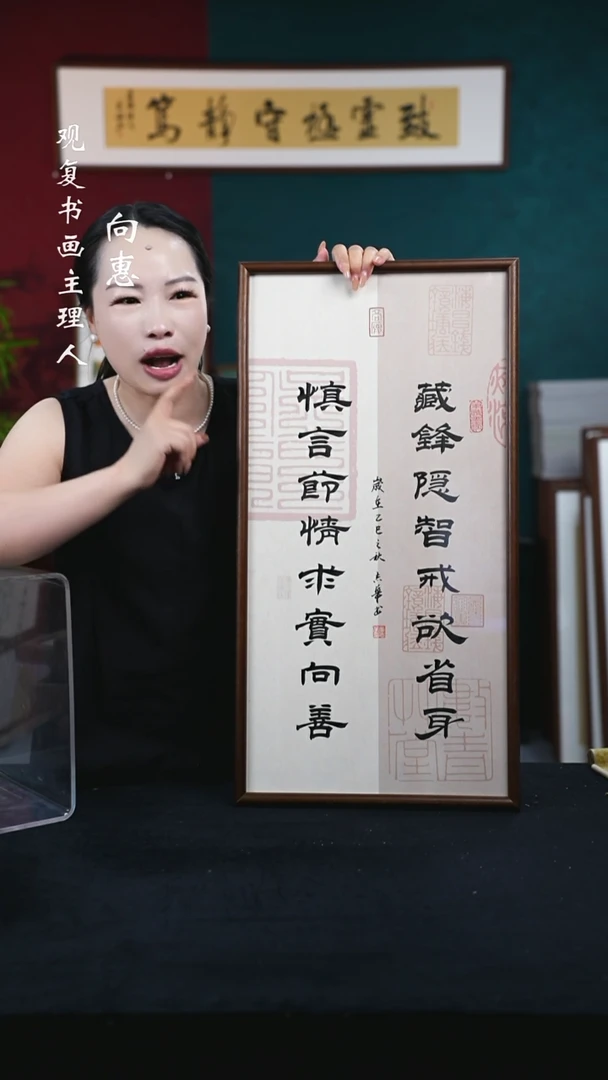 致虚极守静笃
观复书画主理人
向惠
藏鋒隐智戒欲省身
慎言節情求實向善
歲在乙巳之秋